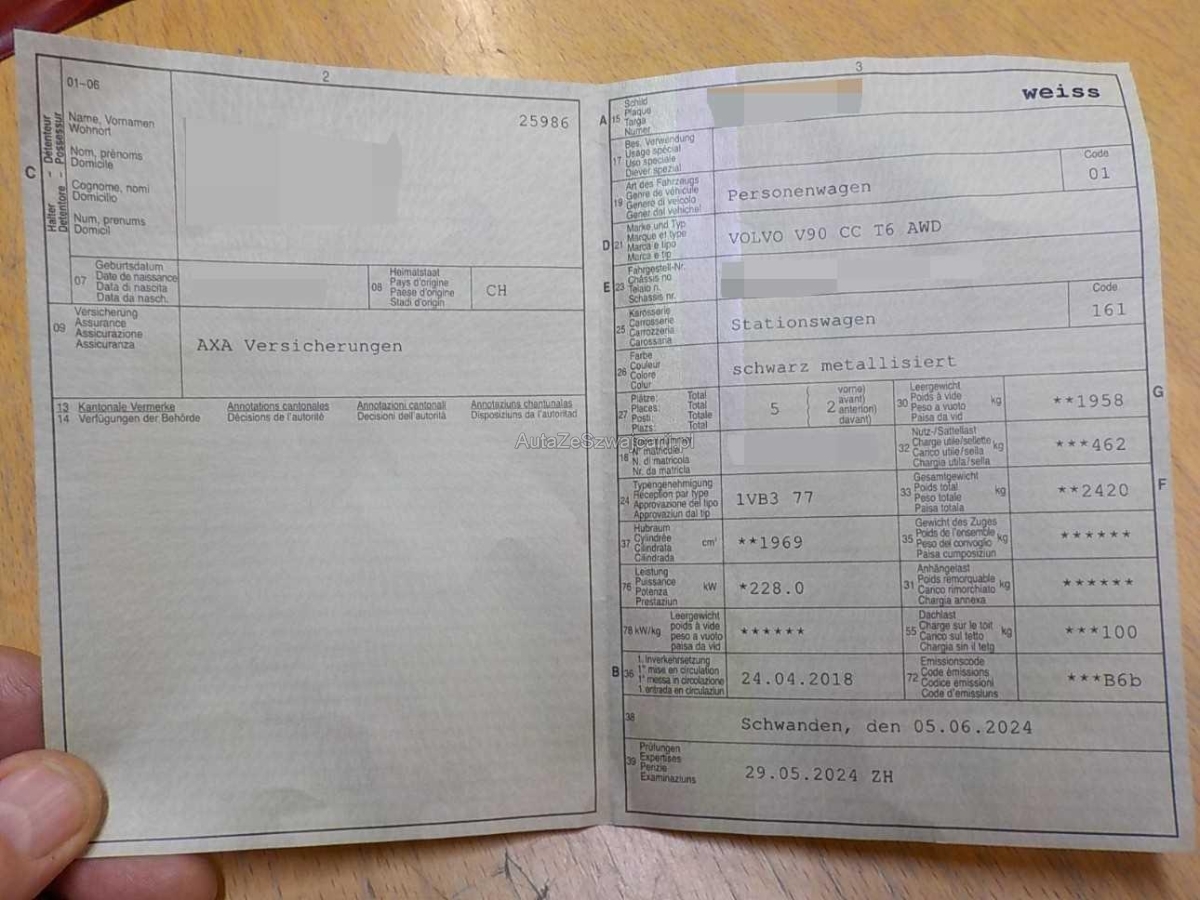 2
01-06
Halter - Détenteur
Detentore - Possessur
C
Name, Vornamen
Wohnort
Nom, prénoms
Domicile
Cognome, nomi
Domicilio
Num, prenums
Domicil
25986
07
Geburtsdatum
Date de naissance
Data di nascita
Data da nasch.
08
Heimatstaat
Pays d'origine
Paese d'origine
Stadi d'origin
CH
09
Versicherung
Assurance
Assicurazione
Assicuranza
AXA Versicherungen
13 Kantonale Vermerke Annotations cantonales Annotazioni cantonali Annotaziuns chantunalas
14 Verfügungen der Behörde Décisions de l'autorité Decisioni dell'autorità Disposiziuns da l'autoritad
AutaZeSzwajcarii.pl
3
A 15
Schild
Plaque
Targa
Numer
weiss
17
Bes. Verwendung
Usage spécial
Uso speciale
Diever spezial
19
Art des Fahrzeugs
Genre de véhicule
Genere di veicolo
Gener dal vehichel
Personenwagen
Code
01
D 21
Marke und Typ
Marque et type
Marca e tipo
Marca e tip
VOLVO V90 CC T6 AWD
E 23
Fahrgestell-Nr.
Châssis no
Telaio n.
Schassis nr.
25
Karosserie
Carrosserie
Carrozzeria
Carossaria
Stationswagen
Code
161
26
Farbe
Couleur
Colore
Colur
schwarz metallisiert
27
Plätze: Total
Places: Total
Posti: Totale
Plazs: Total
5
2
vorne)
avant)
anteriori)
davant)
30
Leergewicht
Poids à vide
Peso a vuoto
Paisa da vid
kg
**1958
G
18
N° matricule
N. di matricola
Nr. da matricla
32
Nutz-/Sattellast
Charge utile/sellette
Carico utile/sella
Chargia utila/sella
kg
***462
24
Typengenehmigung
Réception par type
Approvazione del tipo
Approvaziun dal tip
1VB3 77
33
Gesamtgewicht
Poids total
Peso totale
Paisa totala
kg
**2420
F
37
Hubraum
Cylindrée
Cilindrata
Cilindrada
cm³
**1969
35
Gewicht des Zuges
Poids de l'ensemble
Peso del convoglio
Paisa cumposiziun
kg
******
76
Leistung
Puissance
Potenza
Prestaziun
kW
*228.0
31
Anhängelast
Poids remorquable
Carico rimorchiato
Chargia annexa
kg
******
78 kW/kg
Leergewicht
poids à vide
peso a vuoto
paisa da vid
******
55
Dachlast
Charge sur le toit
Carico sul tetto
Chargia sin il tetg
kg
***100
B 36
1. Inverkehrsetzung
1re mise en circulation
1a messa in circolazione
1. entrada en circulaziun
24.04.2018
72
Emissionscode
Code émissions
Codice emissioni
Code d'emissiuns
***B6b
38
Schwanden, den 05.06.2024
39
Prüfungen
Expertises
Perizie
Examinaziuns
29.05.2024 ZH